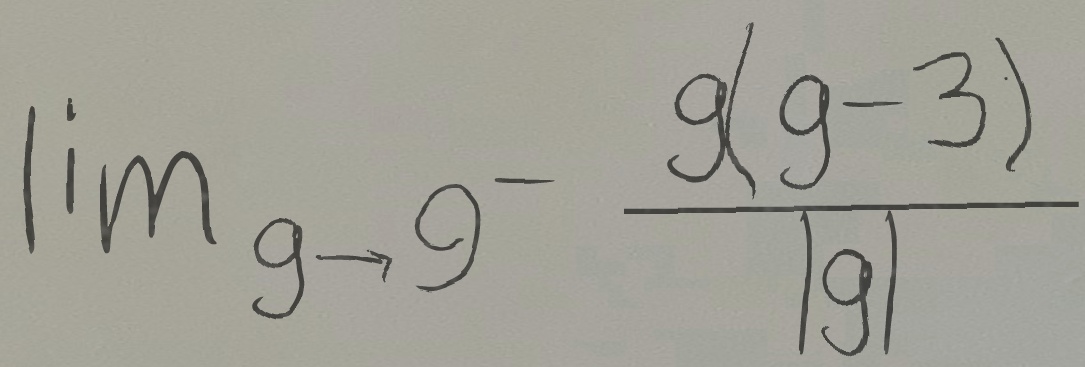 lim g→9⁻ g(g-3)
|g|